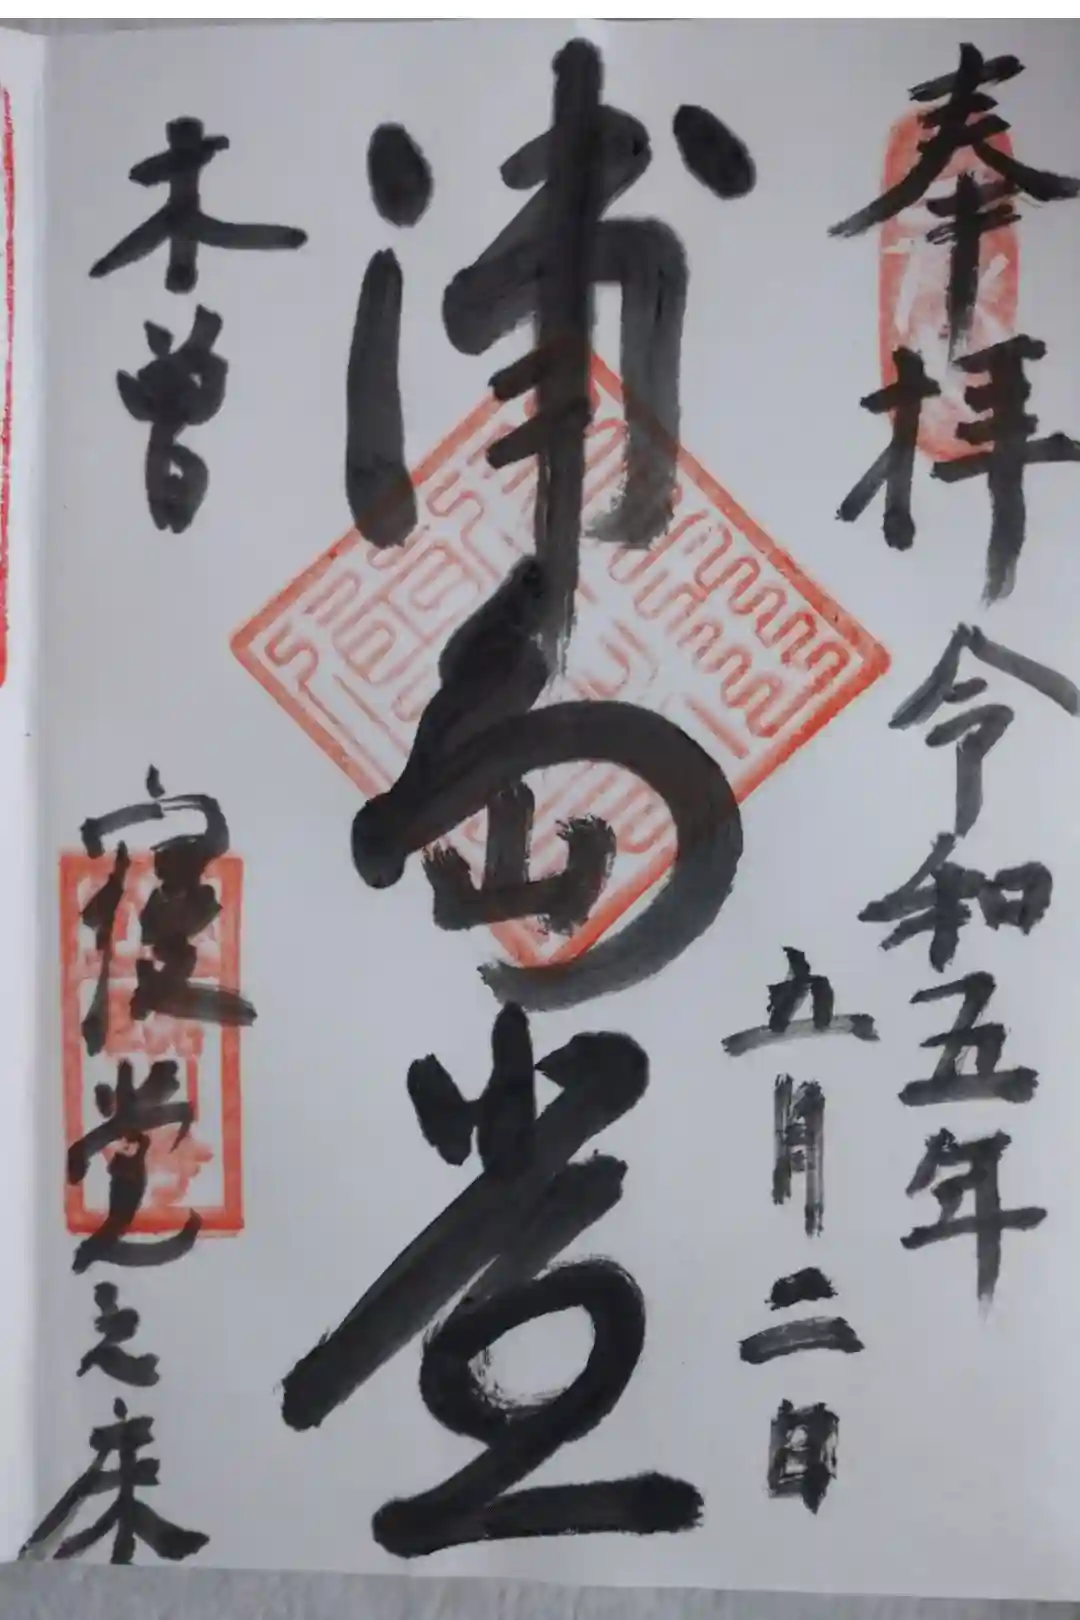 奉拝 令和五年
五月二日
浦島堂
木曽 寝覚之床